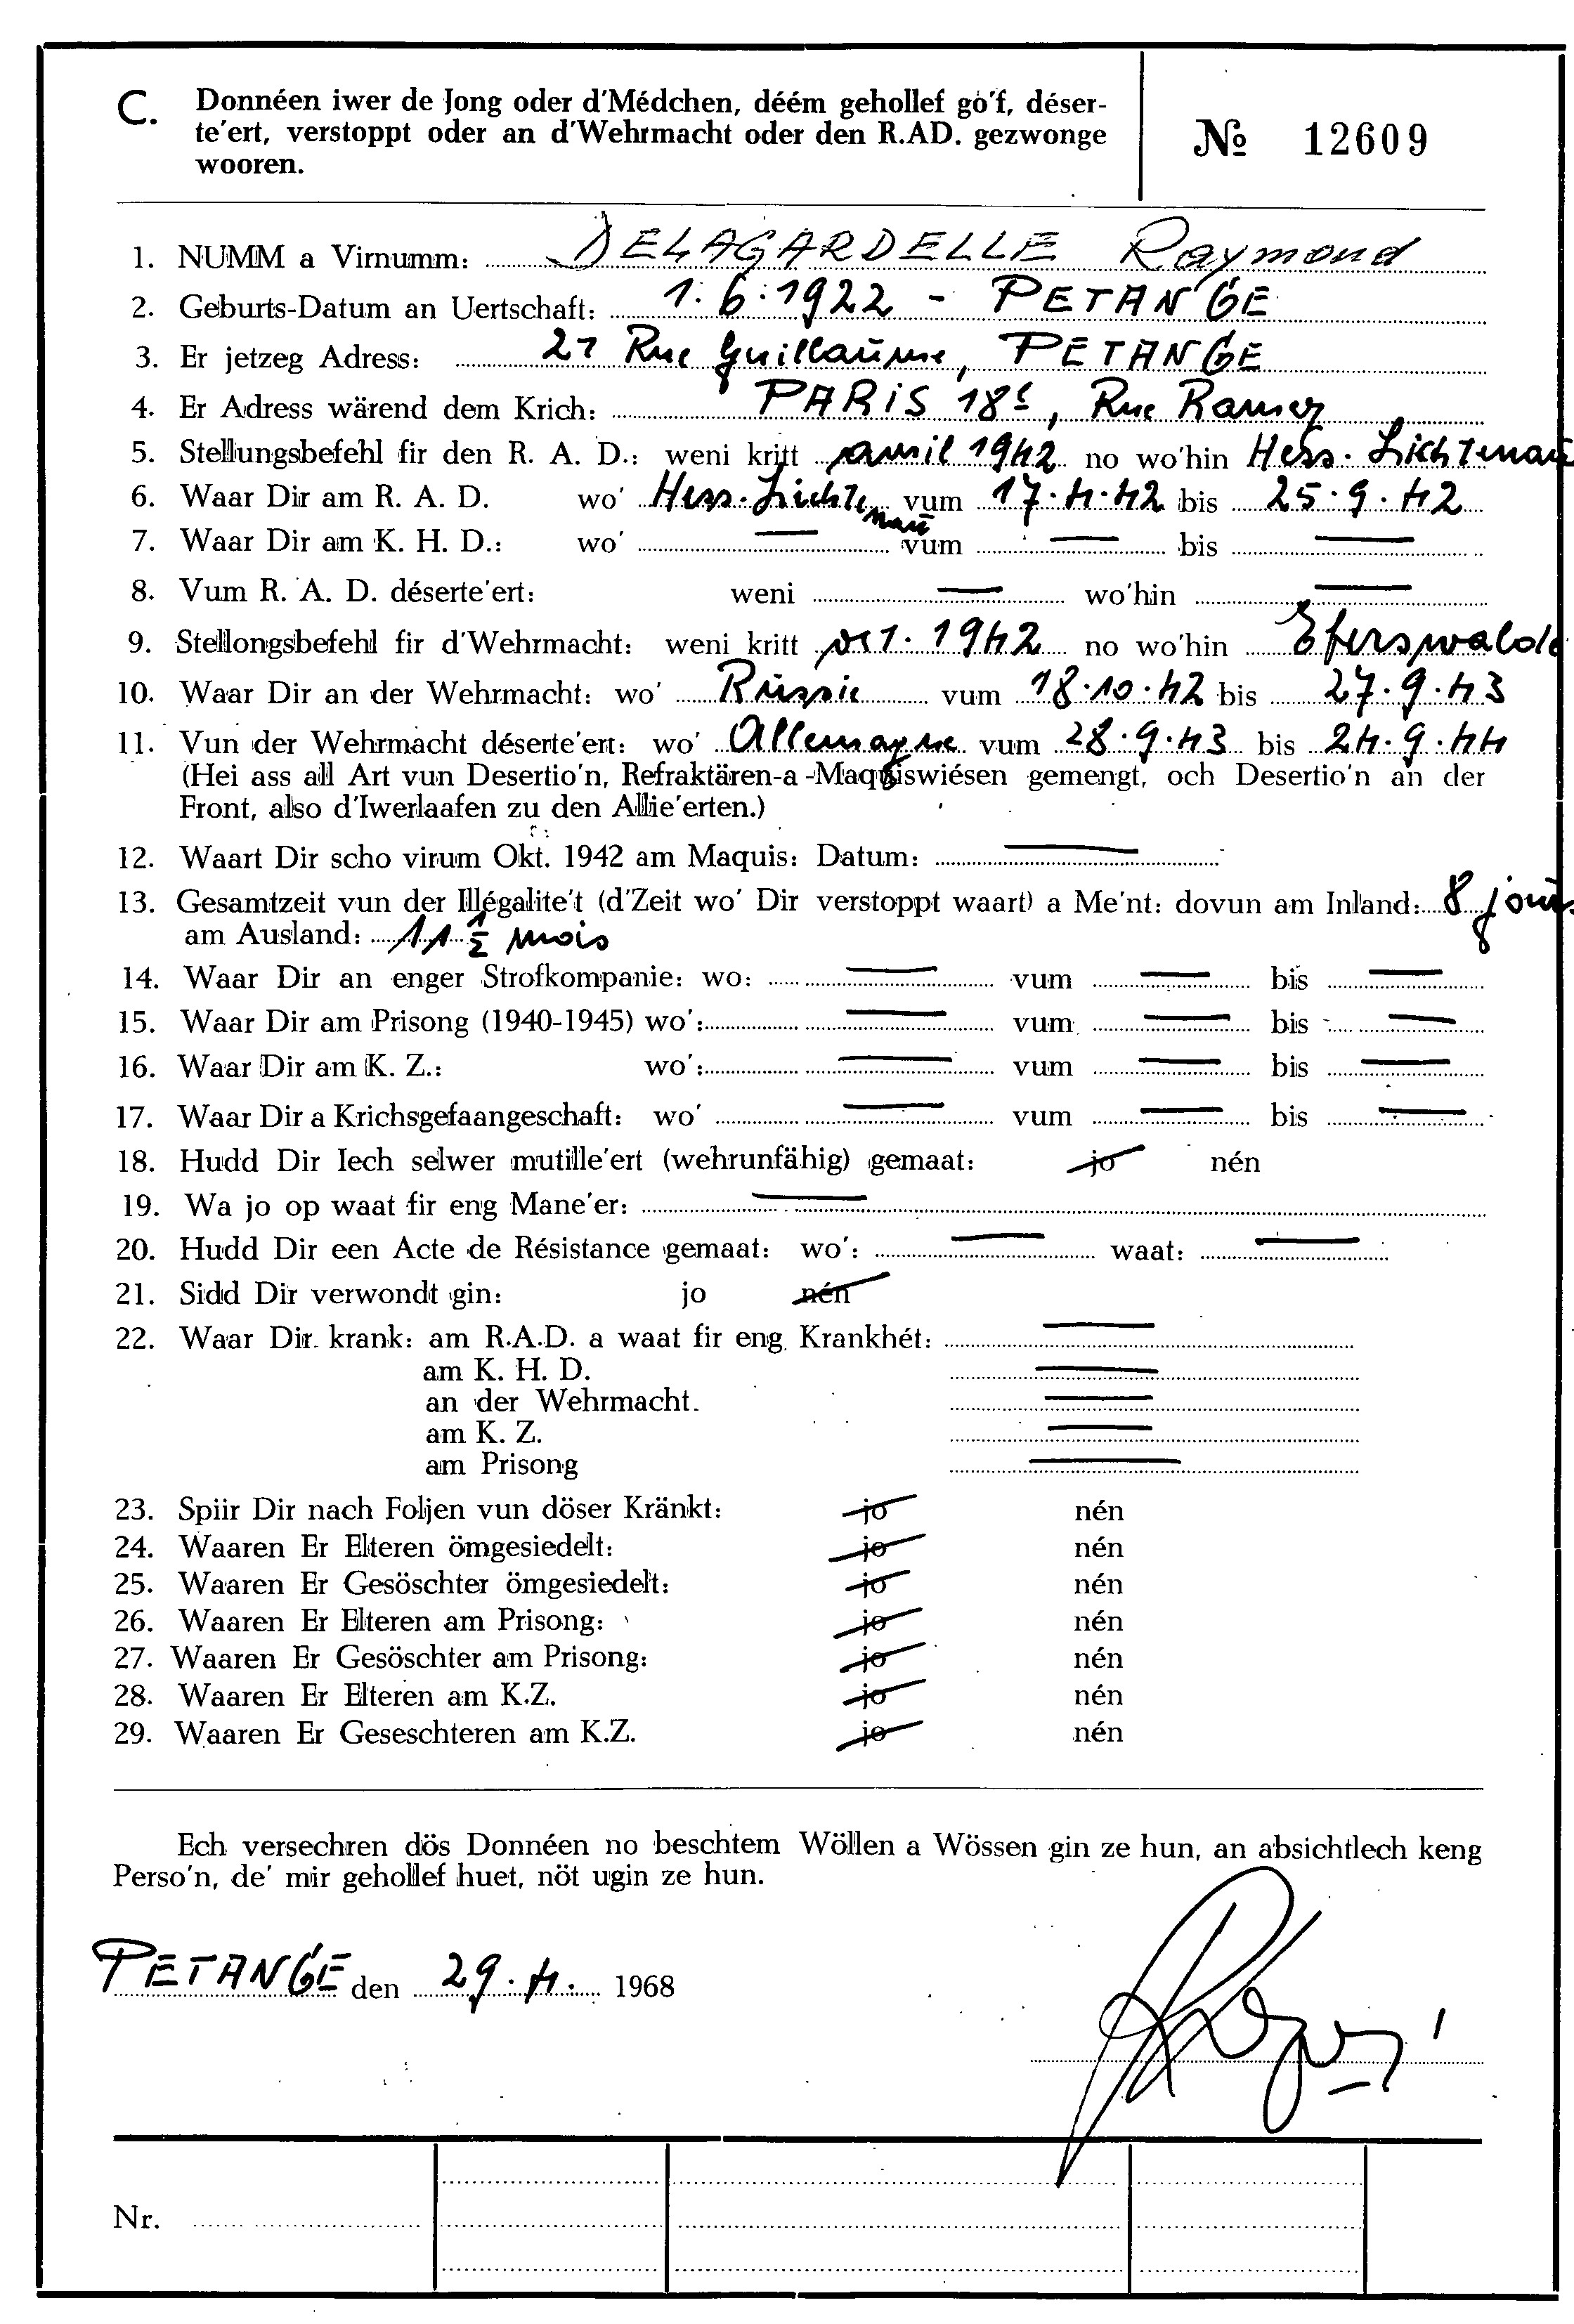 C. Donnéen iwer de Jong oder d'Médchen, déém gehollef go'f, déser-
te'ert, verstoppt oder an d'Wehrmacht oder den R.AD. gezwonge
wooren.
№ 12609
1. NUMM a Virnumm: DELAGARDELLE Raymond
2. Geburts-Datum an Uertschaft: 1.6.1922 - PETANGE
3. Er jetzeg Adress: 21 Rue Guillaume, PETANGE
4. Er Adress wärend dem Krich: PARIS 18e, Rue Ramey
5. Stellungsbefehl fir den R. A. D.: weni kritt avril 1942 no wo'hin Hess. Lichtenau
6. Waar Dir am R. A. D. wo' Hess. Lichtenau vum 17.4.42 bis 25.9.42
7. Waar Dir am K. H. D.: wo' — vum — bis —
8. Vum R. A. D. déserte'ert: weni — wo'hin —
9. Stellongsbefehl fir d'Wehrmacht: weni kritt oct. 1942 no wo'hin Eferswalde
10. Waar Dir an der Wehrmacht: wo' Russie vum 18.10.42 bis 27.9.43
11. Vun der Wehrmacht déserte'ert: wo' Allemagne vum 28.9.43 bis 24.9.44
(Hei ass all Art vun Desertio'n, Refraktären-a -Maquiswiésen gemengt, och Desertio'n an der
Front, also d'Iwerlaafen zu den Allie'erten.)
12. Waart Dir scho virum Okt. 1942 am Maquis: Datum: —
13. Gesamtzeit vun der Illégalite't (d'Zeit wo' Dir verstoppt waart) a Me'nt: dovun am Inland: 8 jours
am Ausland: 11 1/2 mois
14. Waar Dir an enger Strofkompanie: wo: — vum — bis —
15. Waar Dir am Prisong (1940-1945) wo': — vum — bis —
16. Waar Dir am K. Z.: wo': — vum — bis —
17. Waar Dir a Krichsgefaangeschaft: wo' — vum — bis —
18. Hudd Dir Iech selwer mutille'ert (wehrunfähig) gemaat: jo nén
19. Wa jo op waat fir eng Mane'er: —
20. Hudd Dir een Acte de Résistance gemaat: wo': — waat: —
21. Sidd Dir verwondt gin: jo nén
22. Waar Dir krank: am R.A.D. a waat fir eng Krankhét: —
am K. H. D. —
an der Wehrmacht. —
am K. Z. —
am Prisong —
23. Spiir Dir nach Foljen vun döser Kränkt: jo nén
24. Waaren Er Elteren ömgesiedelt: jo nén
25. Waaren Er Gesöschter ömgesiedelt: jo nén
26. Waaren Er Elteren am Prisong: jo nén
27. Waaren Er Gesöschter am Prisong: jo nén
28. Waaren Er Elteren am K.Z. jo nén
29. Waaren Er Geseschteren am K.Z. jo nén
Ech versechren dös Donnéen no beschtem Wöllen a Wössen gin ze hun, an absichtlech keng
Perso'n, de' mir gehollef huet, nöt ugin ze hun.
PETANGE den 29.4. 1968
Nr.